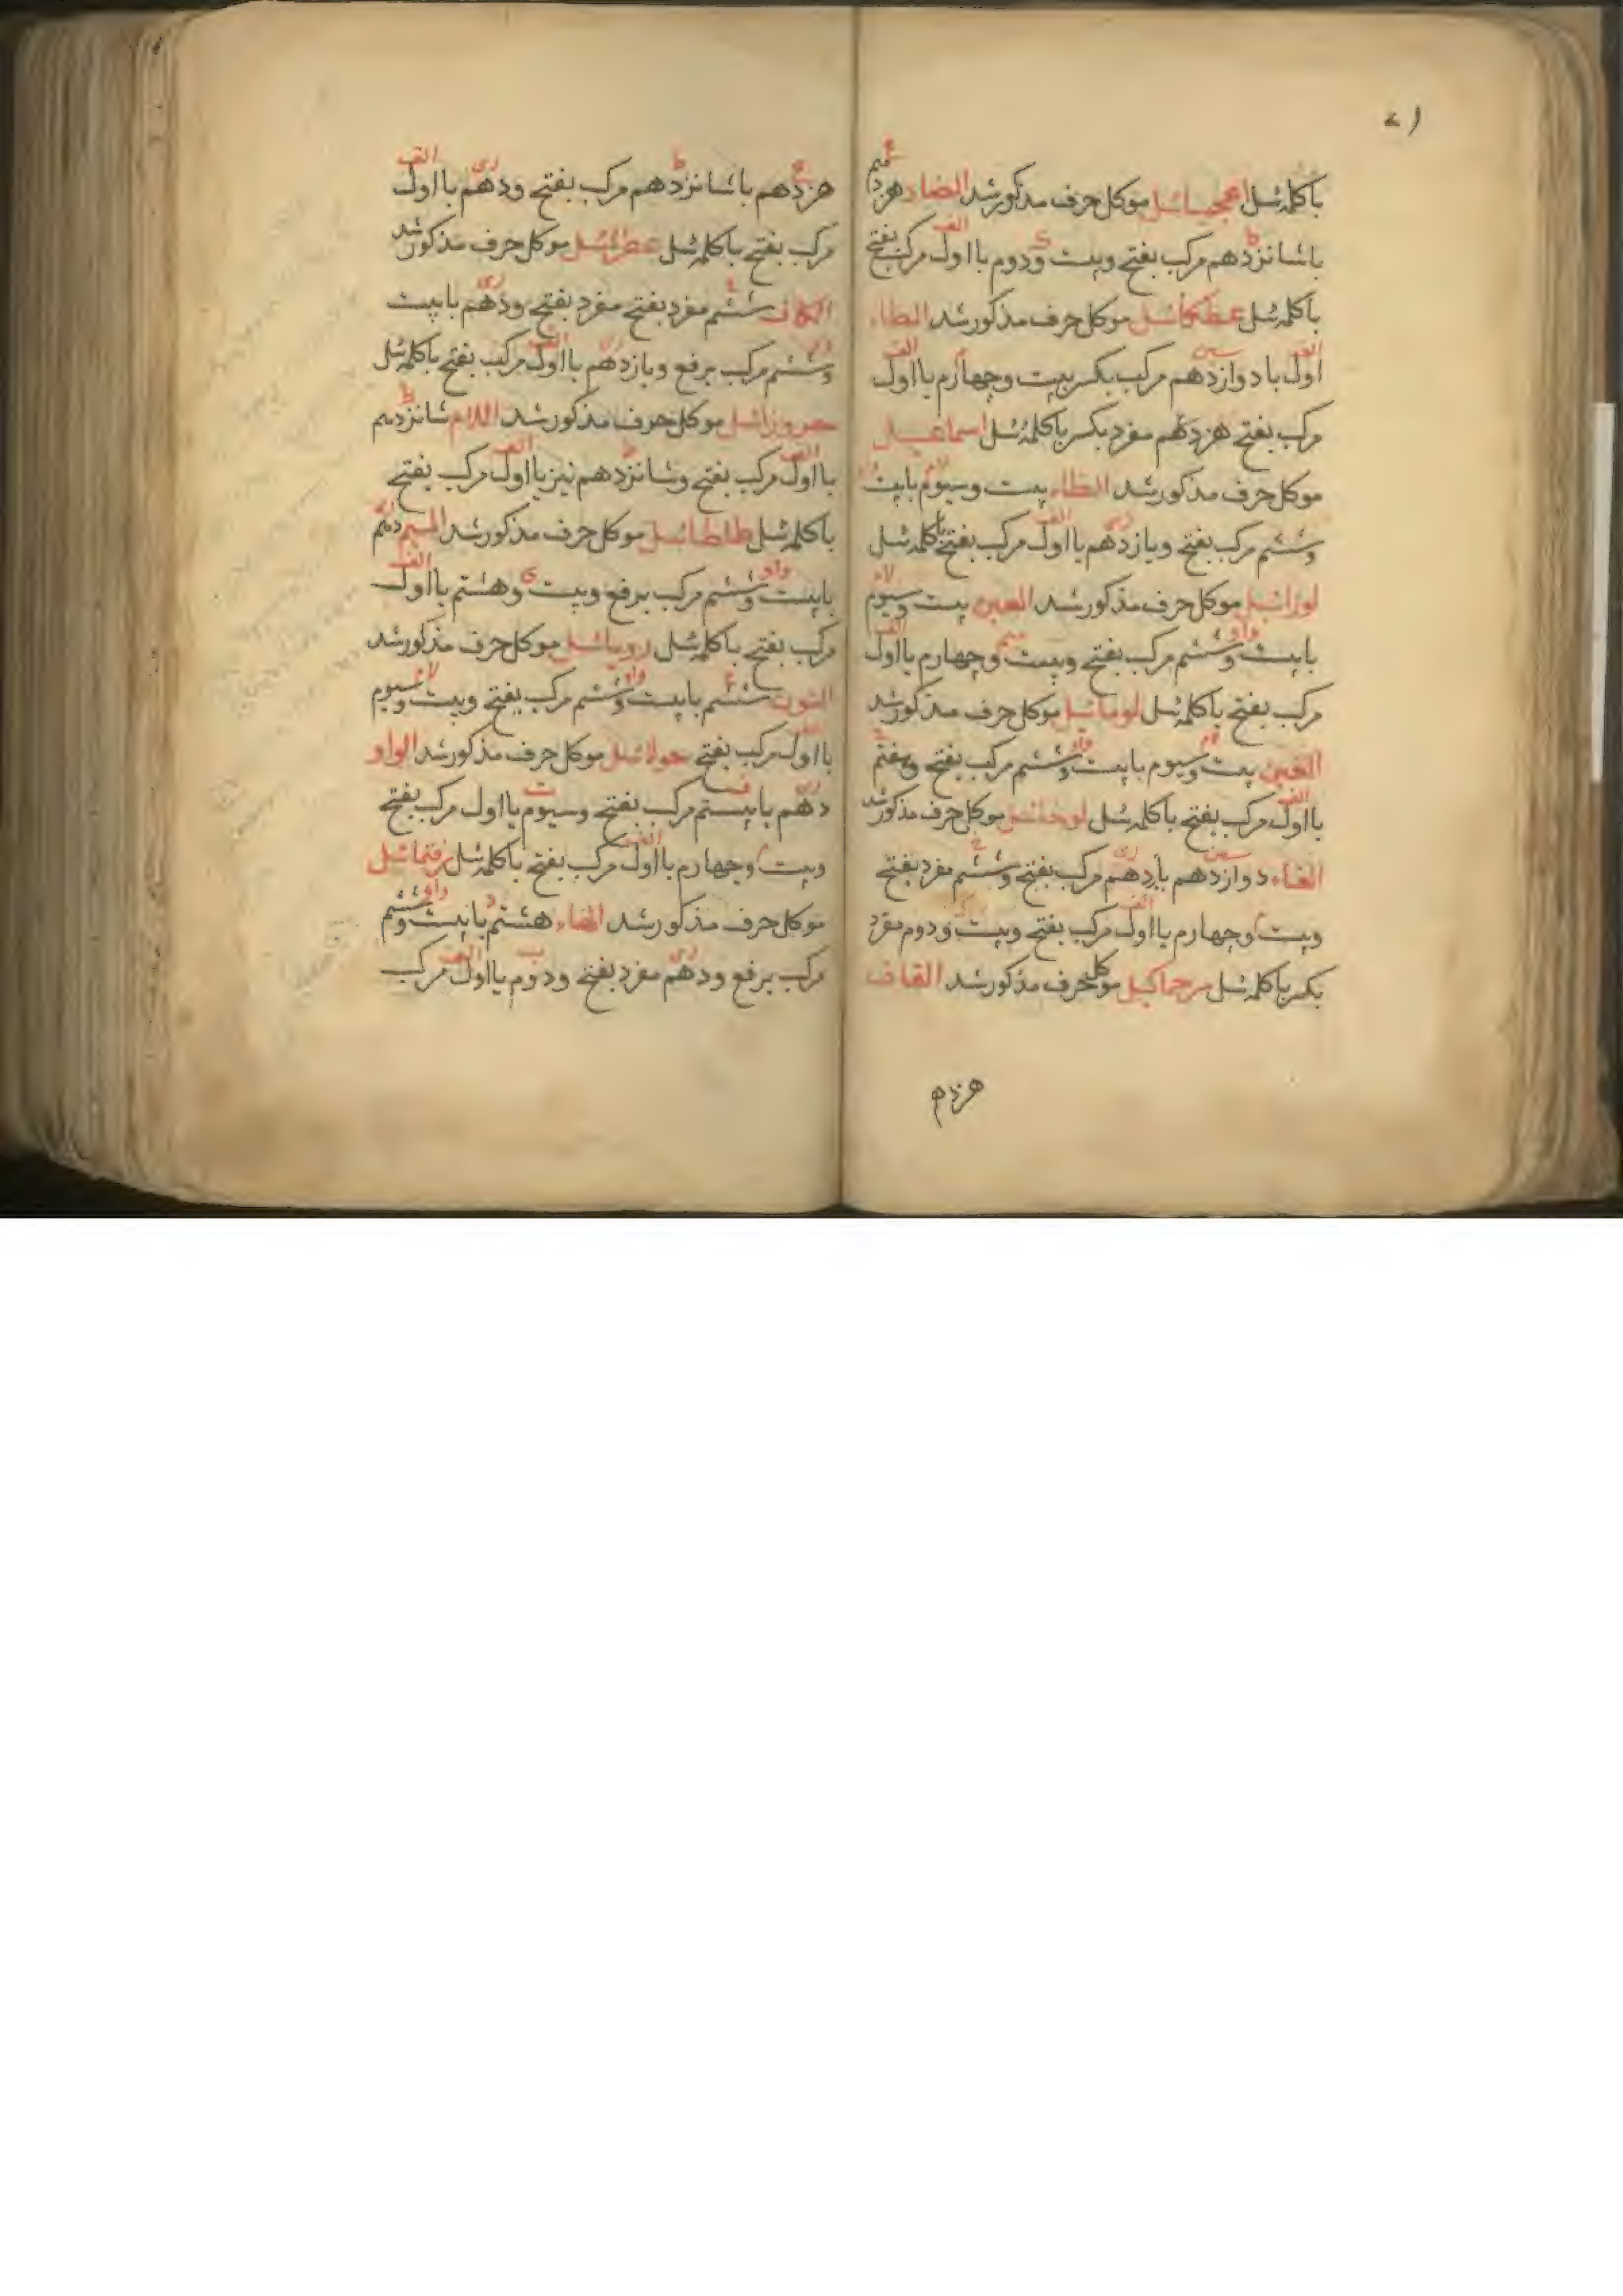 باكلمه ئيل اعجميائيل موكل حرف مذكور شد الضاد هژدهم
باشانزدهم مركب بفتح وبيست ودوم بااول مركب بفتح
باكلمه ئيل عطكائيل موكل حرف مذكور شد الطاء
اول بادوازدهم مركب بكسر بيست وچهارم بااول
مركب بفتح هژدهم مفرد بكسر باكلمه ئيل اسماعيل
موكل حرف مذكور شد الظاء بيست وسيوم بابيست
وششم مركب بفتح ويازدهم بااول مركب بفتح باكلمه ئيل
لوزائيل موكل حرف مذكور شد العين بيست وسيوم
بابيست وششم مركب بفتح وبيست وچهارم بااول
مركب بفتح باكلمه ئيل لومائيل موكل حرف مذكور شد
الغين بيست وسيوم بابيست وششم مركب بفتح وهفتم
بااول مركب بفتح باكلمه ئيل لوخائيل موكل حرف مذكور شد
الفاء دوازدهم بادهم مركب بفتح وششم مفرد بفتح
وبيست وچهارم بااول مركب بفتح وبيست ودوم مفرد
بكسر باكلمه ئيل سرحماكيل موكل حرف مذكور شد القاف
هژدهم
هژدهم باشانزدهم مركب بفتح ودهم بااول
مركب بفتح باكلمه ئيل عطرائيل موكل حرف مذكور شد
الكاف ششم مفرد بفتح مفرد بفتح ودهم بابيست
وششم مركب برفع ويازدهم بااول مركب بفتح باكلمه ئيل
حروزائيل موكل حرف مذكور شد اللام شانزدهم
بااول مركب بفتح وشانزدهم نيز بااول مركب بفتح
باكلمه ئيل طاطائيل موكل حرف مذكور شد الميم دهم
بابيست وششم مركب برفع وبيست وهشتم بااول
مركب بفتح باكلمه ئيل رويائيل موكل حرف مذكور شد
النون ششم بابيست وششم مركب بفتح وبيست وسيوم
بااول مركب بفتح حولائيل موكل حرف مذكور شد الواو
دهم بابيستم مركب بفتح وسيوم بااول مركب بفتح
وبيست وچهارم بااول مركب بفتح باكلمه ئيل رفتمائيل
موكل حرف مذكور شد الهاء هشتم بابيست وششم
مركب برفع ودهم مفرد بفتح ودوم بااول مركب